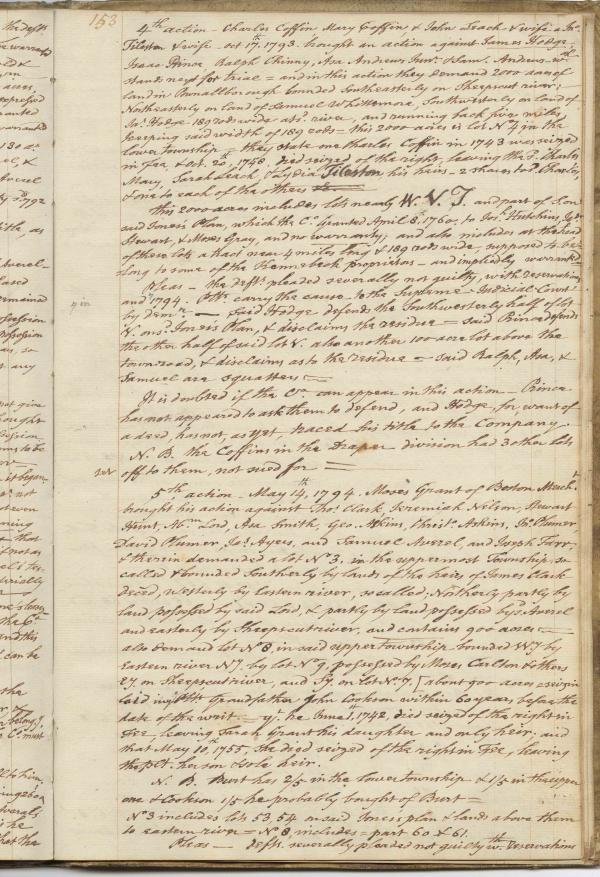 153
4th action - Charles Coffin Mary Coffin & John Leach & wife & Jno.
Tileston & wife - oct 17th. 1793. brought an action against James Hodge,
Isaac Prince Ralph Chinny, Asa Andrews Junr. & Saml. Andrews - wch.
stands next for trial = and in this action they demand 2000 acres of
land in Pownallborough bounded Southeasterly on Sheepscut river;
Northeasterly on land of Samuel Whittemore, Southwesterly on land of
Jas. Hodge 189 rods wide at sd. river, and running back five miles
keeping said width of 189 rods = this 2000 acres is lot No 4 in the
lower township = they state one Charles Coffin in 1743 was seized
in fee & Oct. 20th, 1758, died seized of the right, leaving the Ps. Charles,
Mary, Sarah Leach, & Lydia Tileston his heirs - 2 shares to sd. Charles,
& one to each of the others
this 2000 acres includes lots nearly W. V. T. and part of
and Jones's Plan, which the Co. Granted April 8th. 1760. to Jos. Hutchins, Jas.
Stewart, & Moses Gray, and no warranty; and also includes at the head
of these lots a tract near 4 miles long & 189 rods wide, supposed to be-
long to some of the Kennebeck proprietors - and impliedly warranted
Pleas - the defts. pleaded severally not guilty, with reservations
and 1794. Ptfs. carry the cause to the Supreme Judicial Court
by demr. - Said Hodge defends the Southwesterly half of lot
V. on sd. Jones's Plan, & disclaims the residue = said Prince defends
the other half of said lot V. also another 100 acre lot above the
town road, & disclaims as to the residue = said Ralph, Asa, &
Samuel are squatters =
It is doubted if the Coy. can appear in this action - Prince
has not appeared to ask them to defend, and Hodge, for want of
a deed, has not, as yet traced his title to the Company.
N. B. the Coffins in the Draper division had 3 other lots
off to them, not sued for =
5th action - May 14th, 1794. Moses Grant of Boston Mercht.
brought his action against Thos. Clark, Jeremiah Nelson, Stewart
Hunt, Wm. Lord, Asa Smith, Geo. Atkins, Christr. Atkins, Jno. Plumer,
David Plumer, Jas. Ayers, and Samuel Averel, and Joseph Tarr;
& therein demanded a lot No 3, in the uppermost Township, so
called & bounded Southerly by lands of the heirs of James Clark
deced, Westerly by Eastern river, so called: Notherly partly by
land possessed by said Lord, & partly by land possessed by sd. Averel
and easterly by Sheepscut river, and contains 900 acres =
also demand lot No 8, in said upper township, bounded Wy. by
Eastern river Ny. by lot No 9, possessed by Moses Carlton & others
Ey. on Sheepscut river, and Sy. on lot No 7, [about 900 acres = seizin
laid in ye Ptfs Grandfather John Cookson within 60 years before the
date of the writ = yt. he June 1st, 1742, died seized of the right in
Fee, leaving Sarah Grant his daughter and only heir, and
that May 10th, 1755, she died seized of the right in Fee, leaving
the plt. her son & sole heir.
N. B. Burt has 2/5 in the lower township & 1/5 in the upper
one & Cookson 1/5 he probably bought of Burt =
No 3 includes lots 53, 54 on said Jones plan & lands above them
to eastern river = No 8 includes = part 60 & 61.
Pleas - Defts. severally pleaded not guilty wth. reservations